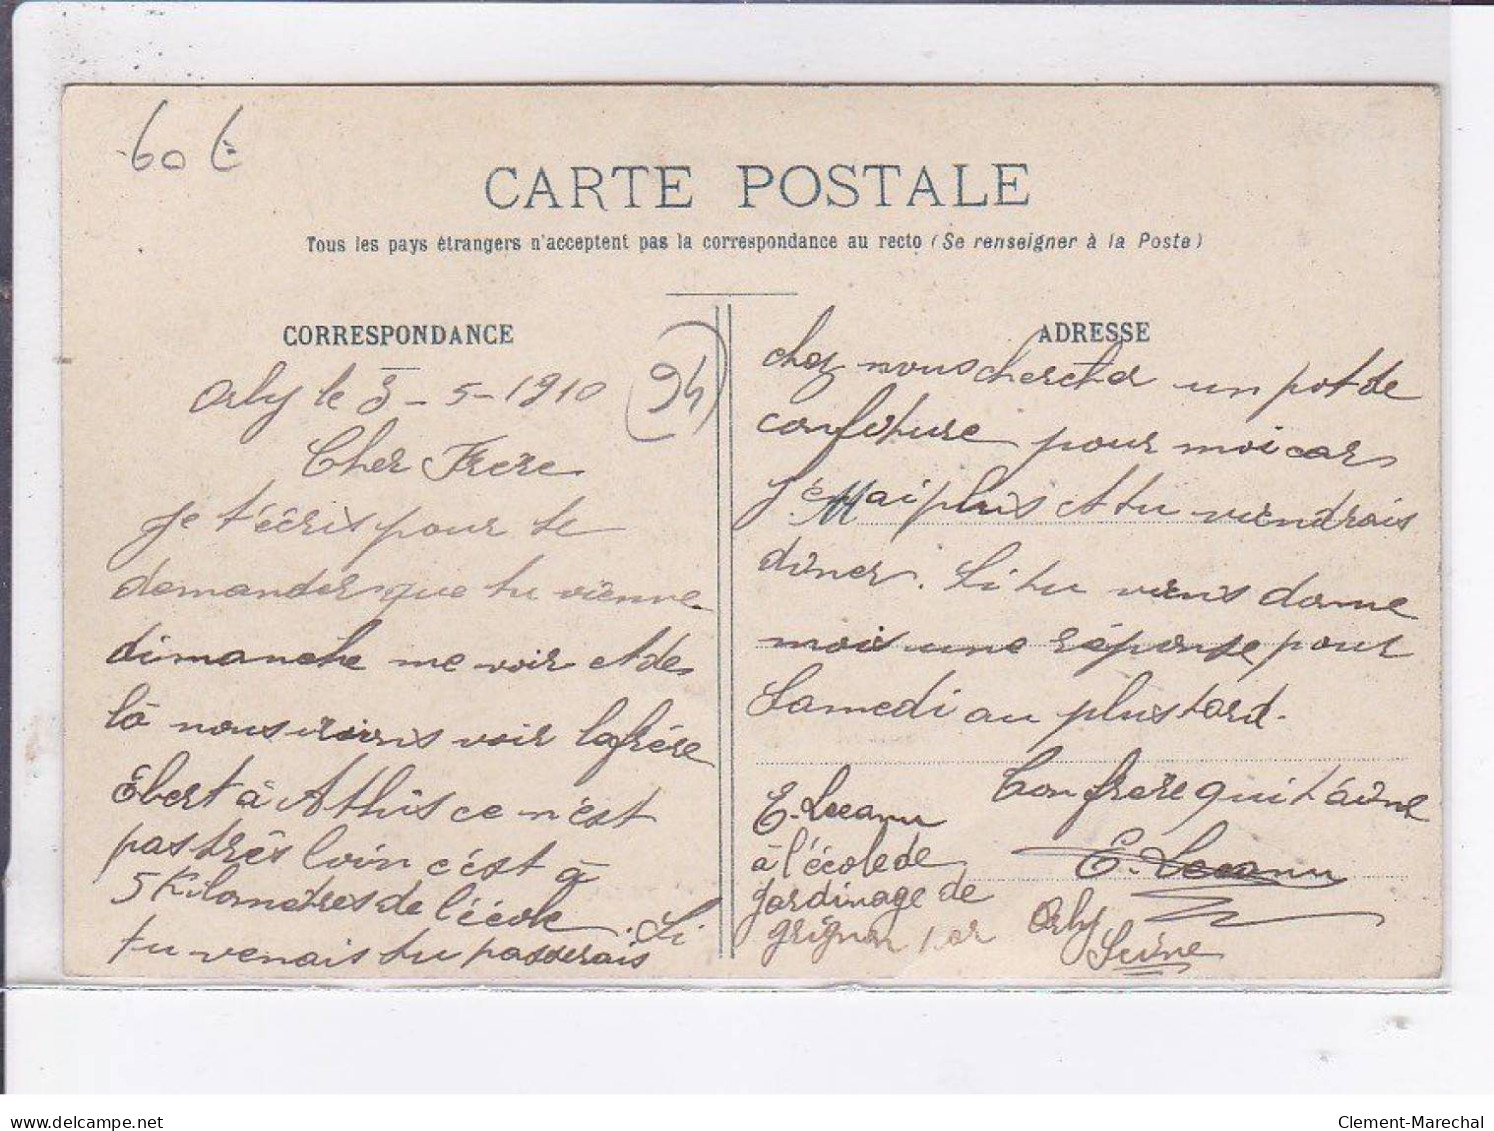 60 €
CARTE POSTALE
Tous les pays étrangers n'acceptent pas la correspondance au recto (Se renseigner à la Poste)
CORRESPONDANCE
Orly le 3-5-1910
94
Cher Frere
Je t'écris pour te
demander que tu vienne
dimanche me voir et de
là nous irions voir la frère
Ebert à Athis ce n'est
pas très loin c'est à
5 Kilomètres de l'école. Si
tu venais tu passerais
ADRESSE
chez nous chercher un pot de
confiture pour moi car
j'en ai plus et tu viendrais
diner. Si tu viens donne
moi une réponse pour
Samedi au plus tard.
Ton frere qui t'aime
E. Leeanu
Orly
Seine
E. Leeanu
à l'école de
jardinage de
grignon par
delcampe.net
Clement-Marechal